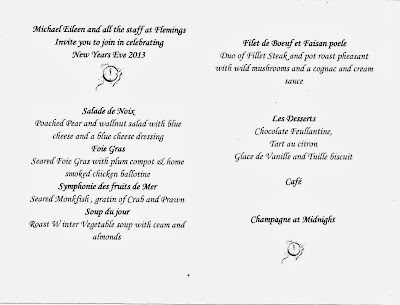 Michael Eileen and all the staff at Flemings
Invite you to join in celebrating
New Years Eve 2013
Salade de Noix
Poached Pear and wallnut salad with blue
cheese and a blue cheese dressing
Foie Gras
Seared Foie Gras with plum compot & home
smoked chicken ballotine
Symphonie des fruits de Mer
Seared Monkfish , gratin of Crab and Prawn
Soup du jour
Roast W inter Vegetable soup with ceam and
almonds
Filet de Boeuf et Faisan poele
Duo of Fillet Steak and pot roast pheasant
with wild mushrooms and a cognac and cream
sauce
Les Desserts
Chocolate Feullantine,
Tart au citron
Glace de Vanille and Tuille biscuit
Café
Champagne at Midnight